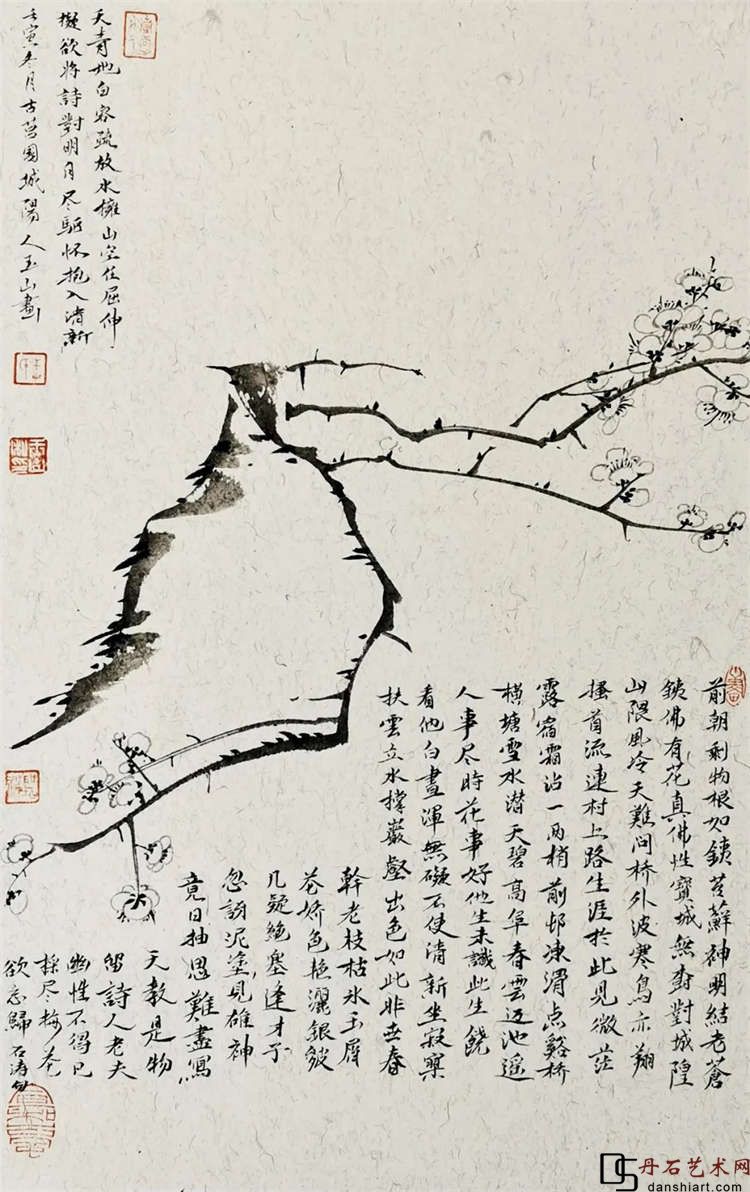 前朝剩物根如銕苔蘚神明結老蒼
銕佛有花真佛性寶城無樹對城隍
山隈風冷天難问桥外波寒鳥亦翔
搔首流連村上路生涯於此見微茫
露宿霜沾一両梢前邨凍渭点谿桥
橫塘雪水潜天碧高阜春雲迈池遥
人事尽時花事好他生未識此生饒
看他白晝渾無礙不使清新坐寂寥
扶雲立水撐巖壑出色如此非世春
幹老枝枯氷玉屑
苍嬌色艳灑銀皴
几疑絶塞逢才子
忽訝泥塗見雄神
竟日抽思難盡寫
天教是物
留詩人老夫
幽性不得已
採尽梅花
欲忘歸 石涛句
天青地白容疏放水擁山空任屈伸
擬欲將詩對明月尽驅怀抱入清新
壬寅冬月古莒國城陽人玉山畫
丹石艺术网
danshiart.com